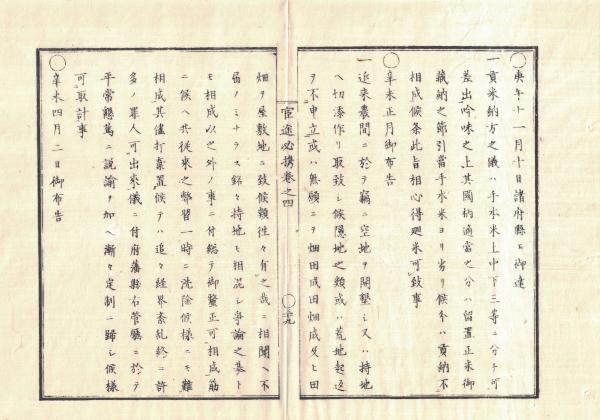 ○庚午十一月十日諸府縣ヱ御達
一貢米納方之儀ハ手本米上中下三等ニ分チ可
差出吟味之上其國柄適當之分ハ留置正米御
藏納之節引當手本米ヨリ劣リ候分ハ貢納不
相成候条此旨相心得廻米可致事
○辛未正月御布告
一近来農間ニ於テ竊ニ空地ヲ開墾シ又ハ持地
ヘ切添作リ取致シ候隠地之類或ハ荒地起返
ヲ不申立或ハ無願ニテ畑田成田畑成及ヒ田
宦途必携巻之四
○廿九
畑ヲ屋敷地ニ致候類徃々有之哉ニ相聞ヘ不
届ノミナラス銘々持地モ相混シ爭論之基ト
モ相成以之外ノ事ニ付総テ御釐正可相成筋
ニ候ヘ共従来之弊習一時ニ洗除候様ニモ難
相成其儘打棄置候テハ追々経界紊乱終ニ許
多ノ罪人可出来儀ニ付府藩縣右管廳ニ於テ
平常懇篤ニ説諭ヲ加ヘ漸々定制ニ歸シ候様
可取計事
○辛未四月二日御布告